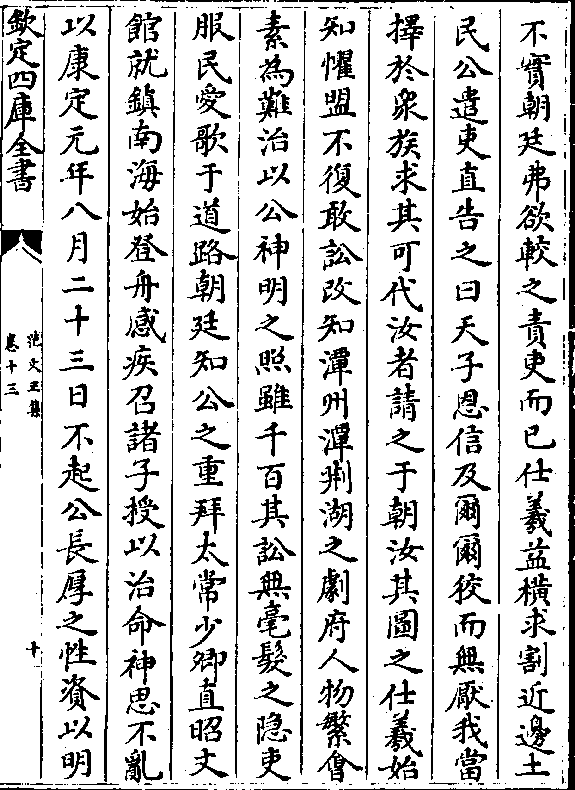 不實朝廷弗欲較之責吏而已仕羲益橫求割近邊土
民公遣吏直告之曰天子恩信及爾爾狡而無厭我當
擇於衆族求其可代汝者請之于朝汝其圖之仕羲始
知懼盟不復敢訟改知潭州潭荆湖之劇府人物繁會
素為難治以公神明之照雖千百其訟無毫髮之隐吏
服民愛歌于道路朝廷知公之重拜太常少卿直昭文
館就鎮南海始登舟感疾召諸子授以治命神思不亂
以康定元年八月二十三日不起公長厚之性資以明
欽定四庫全書
范文正集
卷十三
十